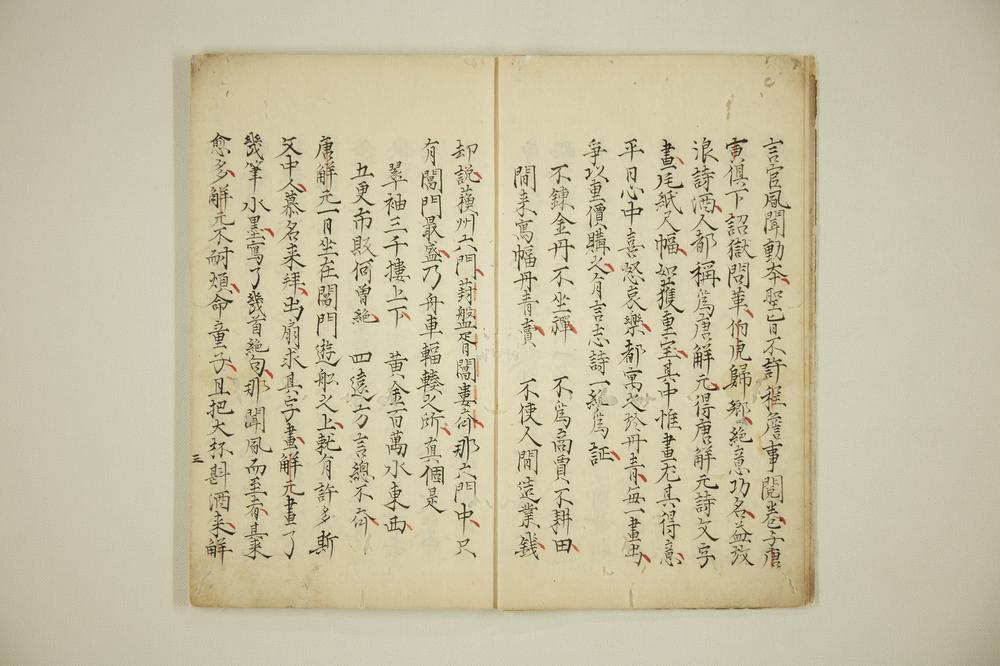 言官風聞動本聖旨不許程詹事閱卷与唐
寅俱下詔獄問革伯虎歸鄉絕意功名益放
浪詩酒人都稱為唐解元得唐解元詩文字
畫片紙尺幅如獲重宝其中惟畫尤其得意
平日心中喜怒哀樂都寓之於丹青每一畫出
争以重價購之有言志詩一絕為証
不鍊金丹不坐禪 不為商賈不耕田
閒来寫幅丹青賣 不使人間造業銭
却説蘓州六門葑盤胥閶婁齊那六門中只
有閶門最盛乃舟車輻輳之所真個是
翠袖三千樓上下 黃金百萬水東西
五更市販何曾絕 四遠方言總不齊
唐解元一日坐在閶門遊船之上就有許多斯
文中人慕名来拜出扇求其字畫解元畫了
幾筆水墨寫了幾首絕句那聞風而至者其来
愈多解元不耐煩命童子且把大杯斟酒来解
三